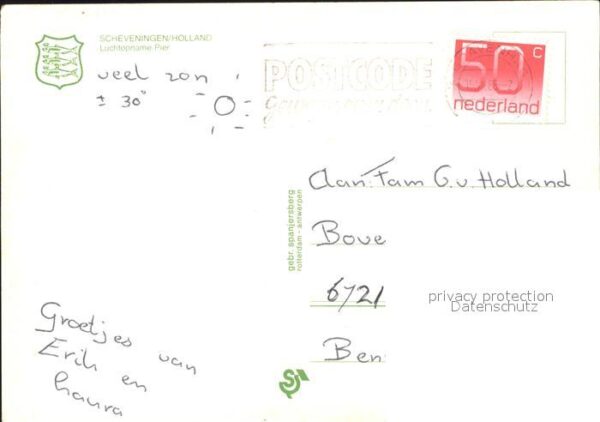 SCHEVENINGEN/HOLLAND
Luchtopname Pier
veel zon
± 30°
POSTCODE
50 C
nederland
gebr. spanjersberg
rotterdam - antwerpen
Aan: Fam G.v. Holland
Bove
6721
Ben
privacy protection
Datenschutz
Groetjes van
Erik en
Laura